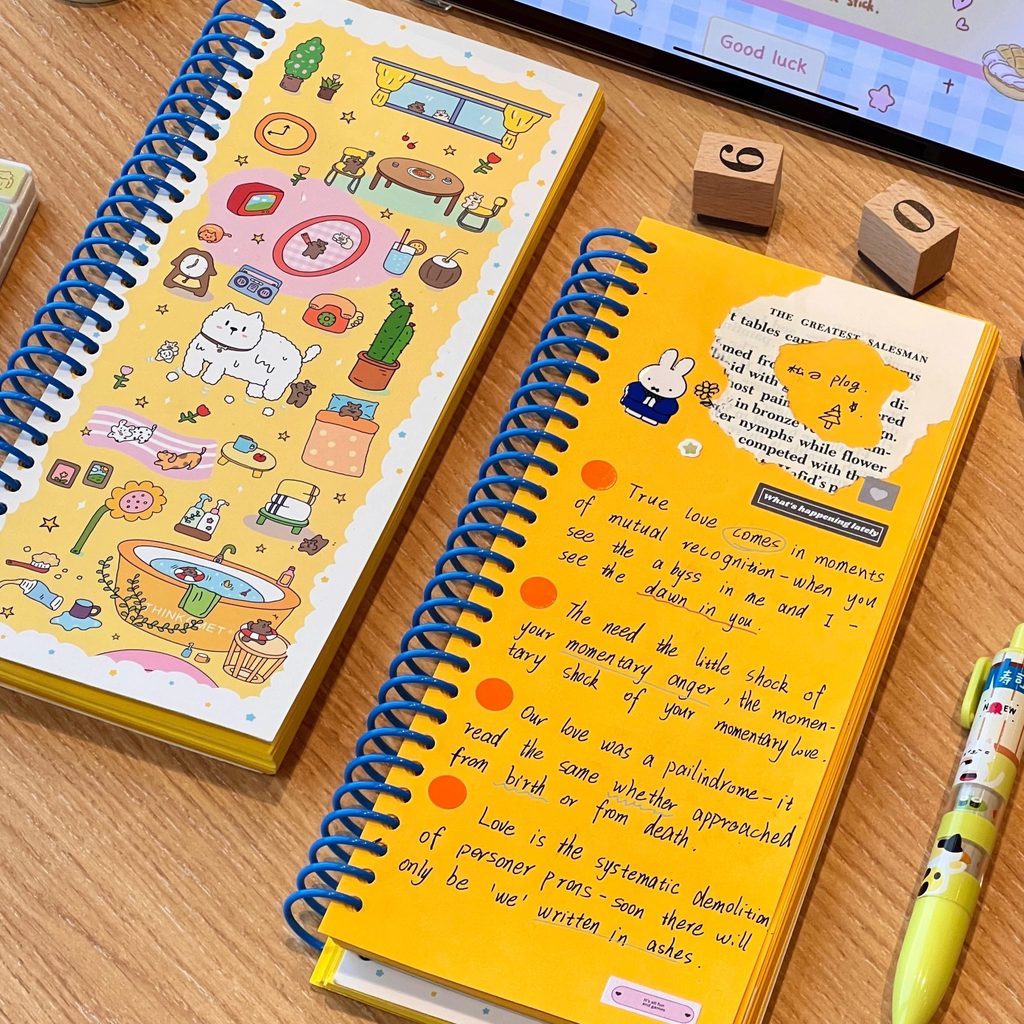 stick.
Good luck
6
0
THE GREATEST SALESMAN
t tables car
med fr
id with
di-
most pain
ered
in bronze
m-
er nymphs while flower
competed with th
Hafid's p
Plog.
What's happening lately
True love comes in moments
of mutual recognition – when you
see the abyss in me and I –
see the dawn in you.
The need the little shock of
your momentary anger, the momen-
tary shock of your momentary love.
Our love was a pailindrome – it
read the same whether approached
from birth or from death.
Love is the systematic demolition
of personer prons – soon there will
only be 'we' written in ashes.
It's all fun
and games
THINK
ET